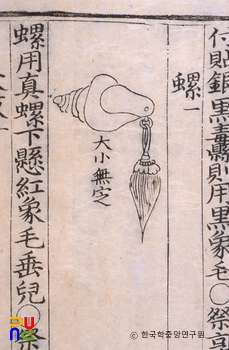 付貼銀黑纛則用黑象毛○祭享
螺一
大小無定
螺用真螺下懸紅象毛垂兒○祭
© 한국학중앙연구원